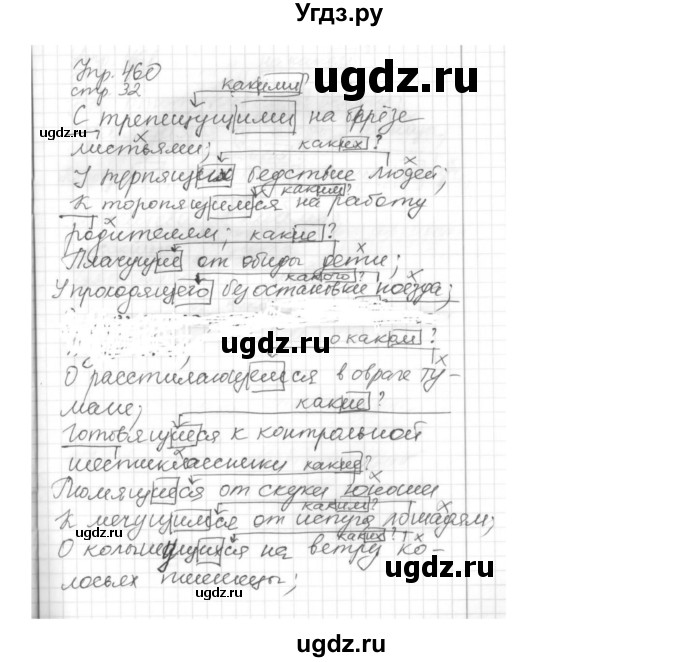 Угдз.ру
Упр. 460
стр 32
какими
ugdz.ru
С трепещущими на берёзе
ugdz.ru
листьями; каких?
У терпящих бедствие людей;
каким
К торопящимся на работу
родителям; какие?
Плачущие от обиды дети;
какого?
У проходящего без остановки поезда;
ugdz.ru
о каком?
О расстилающемся в овраге ту-
мане; какие?
Готовящиеся к контрольной
шестиклассники какие?
Томящиеся от скуки юноши
каким?
К мечущимся от испуга лошадям;
ugdz.ru
каких?
О колышущихся на ветру ко-
лосьях пшеницы;
ugdz.ru
ugdz.ru
ugdz.ru